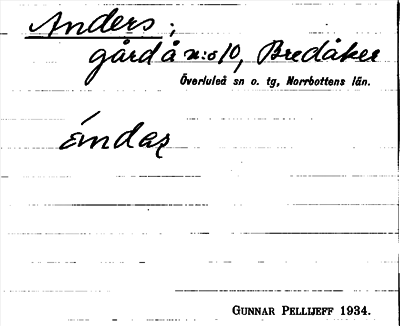 Anders;
gård å n:o 10, Bredåker
Överluleå sn o. tg, Norrbottens län.
ándaʂ
GUNNAR PELLIJEFF 1934.